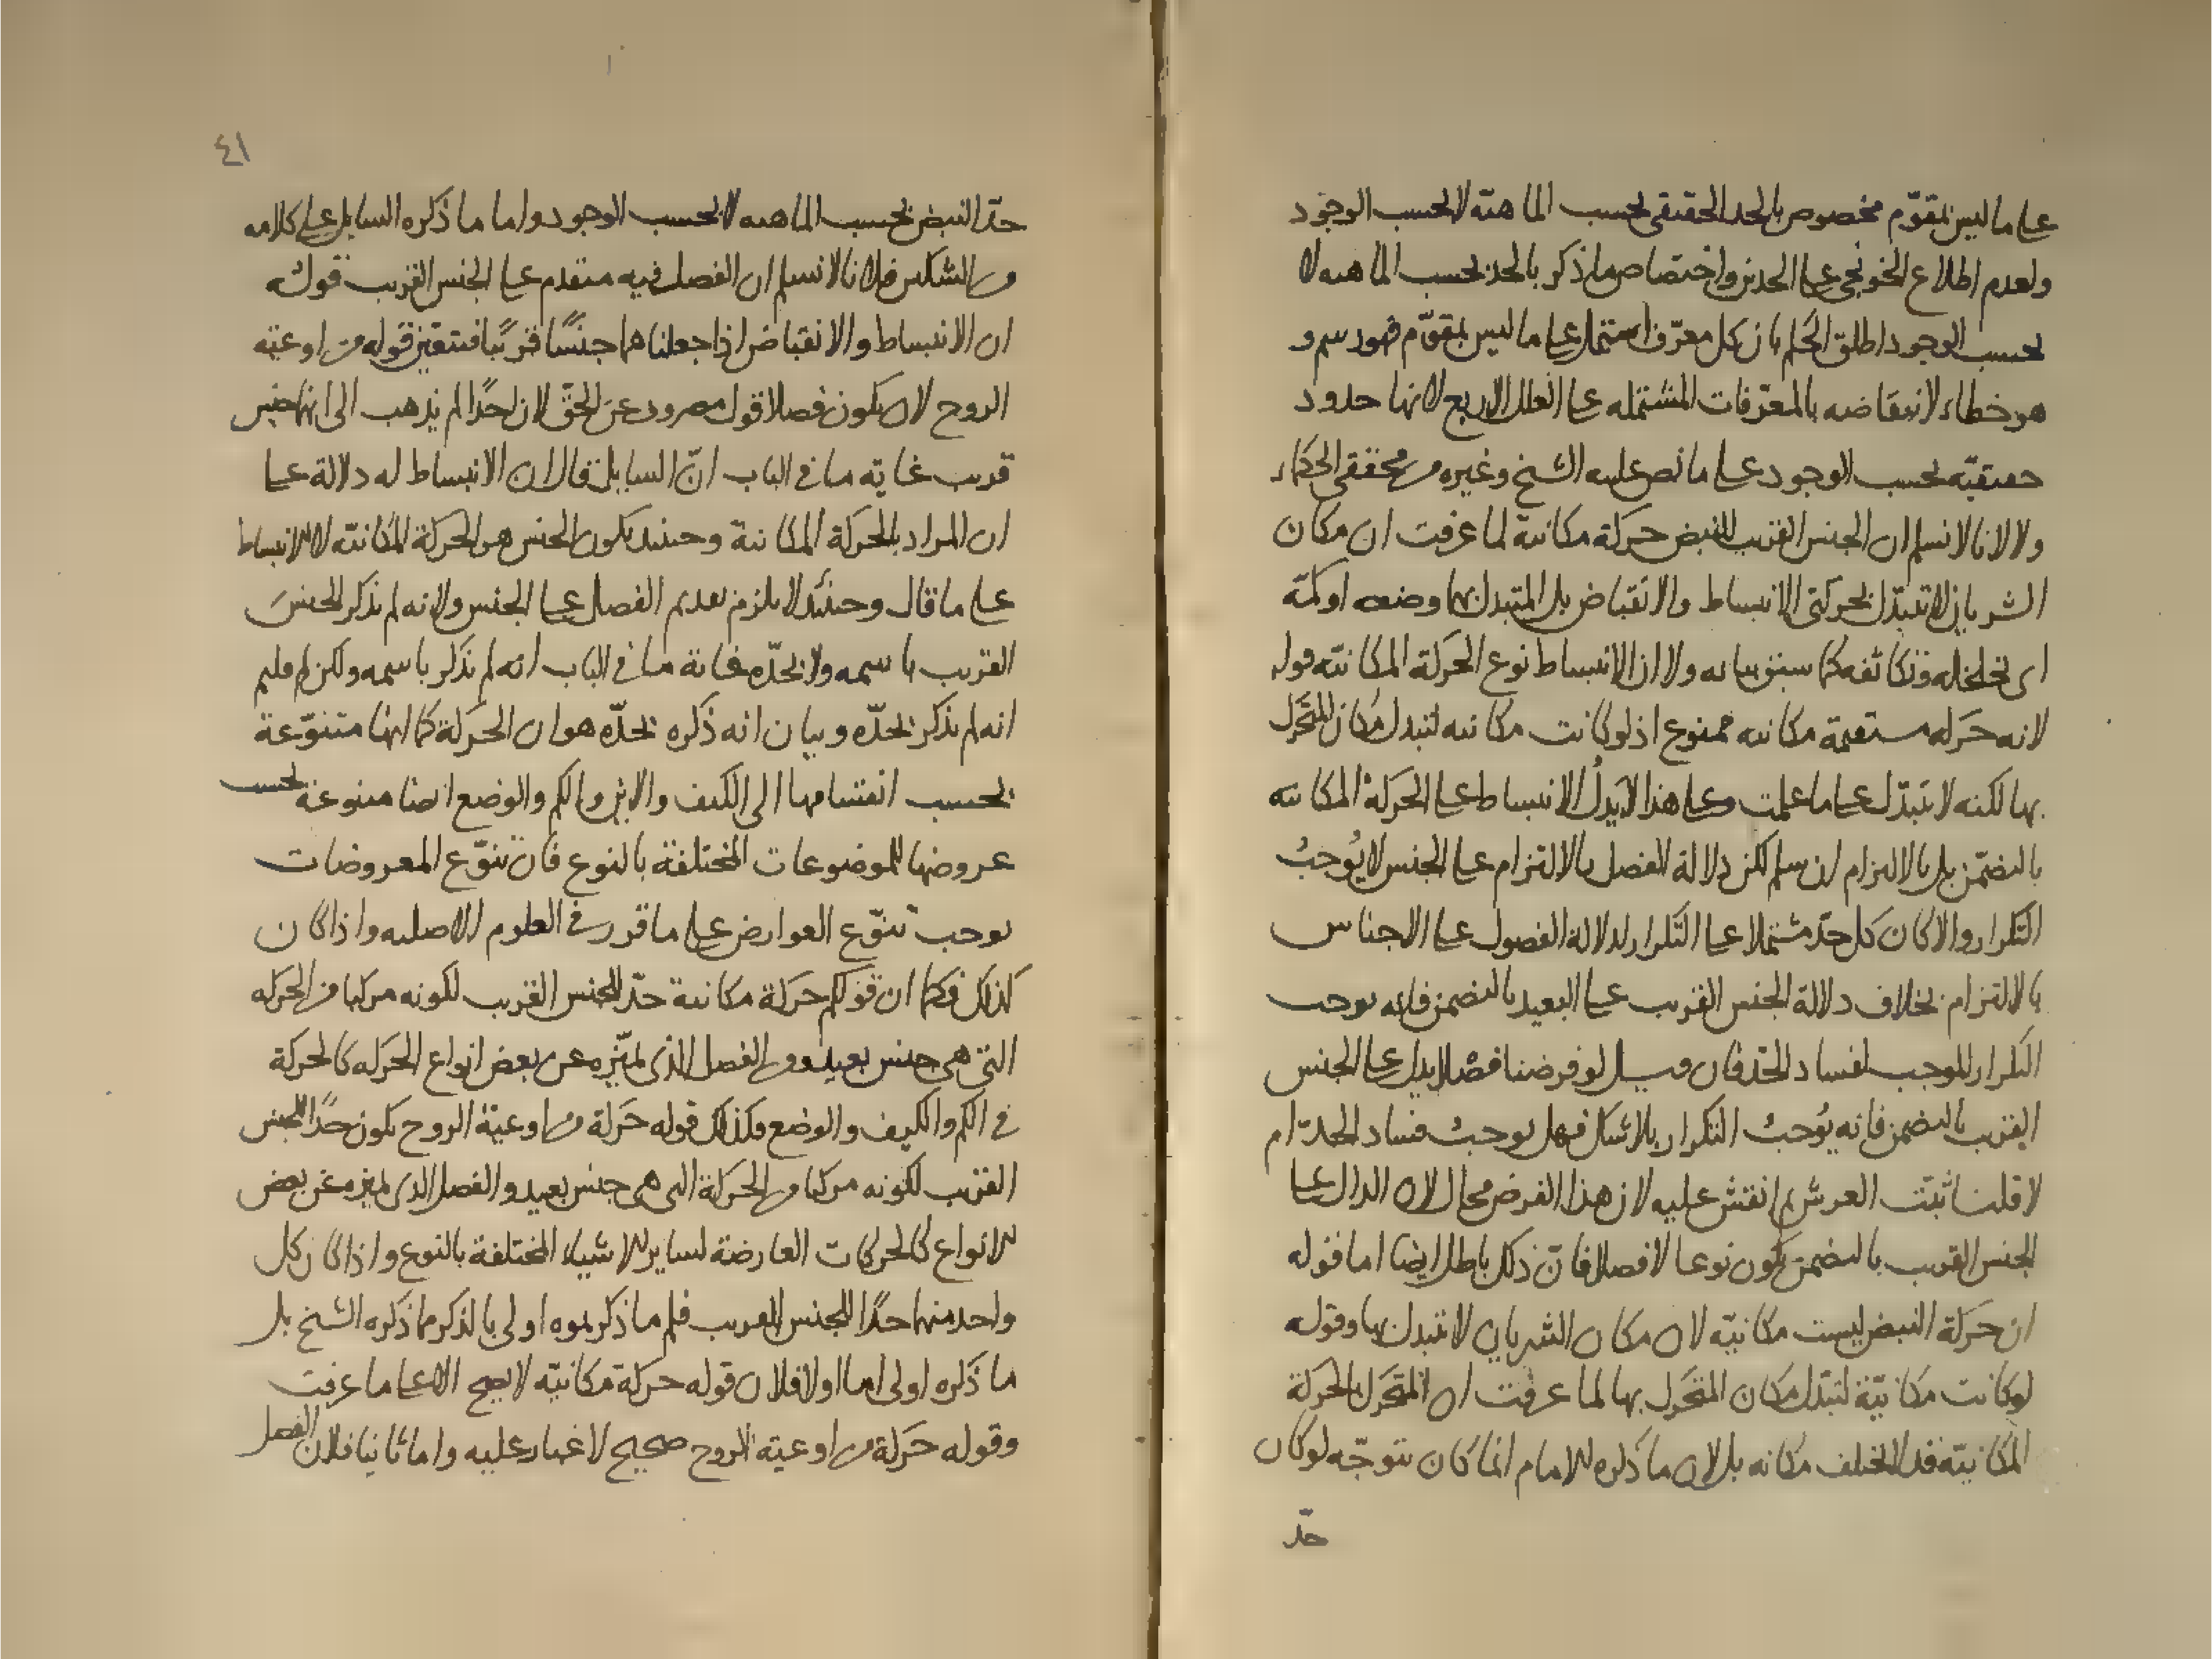 على ما ليس بمقوّم مخصوص بالحد الحقيقى بحسب الماهيّة لا بحسب الوجود
ولعدم اطلاع الخونجى على الحدين واختصاص ما ذكر بالحد بحسب الماهيه لا
بحسب الوجود اطلق الحكم بان كل معرّف اشتمل على ما ليس بمقوّم فهو رسم و
هو خطاء لانتقاضه بالمعرّفات المشتمله على العلل الاربع لانها حدود
حقيقيّه بحسب الوجود على ما نص عليه الشيخ وغيره من محققى الحكماء
ولا لانا لا نسلم ان الجنس القريب للنبض حركة مكانية لما عرفت ان مكان
الشريان لا تتبدّل بحركتى الانبساط والانقباض بل المتبدل بهما وضعه او كمّه
اى تخلخله وتكاثفه كما سبق بيانه ولا ان الانبساط نوع الحركة المكانيّه قوله
لانه حركه مستقيمة مكانيه ممنوع اذ لو كانت مكانيه لتبدل مكان المتحرك
بها لكنه لا يتبدّل على ما علمت وعلى هذا لا يدلُ الانبساط على الحركة المكانيه
بالتضمّن بل بالالتزام ان سلم لكن دلالة الفصل بالالتزام على الجنس لا يُوجبُ
التكرار والا كان كل حدّ مشتملا على التكرار لدلالة الفصول على الاجناس
بالالتزام بخلاف دلالة الجنس القريب على البعيد بالتضمن فانه يوجب
التكرار الموجب لفساد الحدّ فان قيل لو فرضنا فصْلا يدل على الجنس
القريب بالتضمن فانه يُوجبُ التكرار بلا شك فهل يوجبُ فساد الحدّ ام
لا قلت ثبّت العرش ثم انقش عليه لان هذا الفرض محال لان الدال على
الجنس القريب بالتضمن يكون نوعا لا فصلا فانّ ذلك باطل ايضا اما قوله
ان حركة النبض ليست مكانيّه لان مكان الشريان لا تتبدل بها وقوله
لو كانت مكانيّة لتبدّل مكان المتحرك بها لما عرفت ان المتحرك بالحركة
المكانيّه قد لا يختلف مكانه بل لان ما ذكره الامام انما كان يتوجّه لو كان
حدّ
٤١
حدّ النبض بحسب الماهيه لا بحسب الوجود واما ما ذكره السايل على كلامه
من الشكين فلانا لا نسلم ان الفصل فيه متقدم على الجنس القريب قوله
ان الانبساط والانقباض اذا جعلناهما جنسًا قريبًا فيتعيّن قوله من اوعية
الروح لان يكون فصلا قول مصروف عن الحقّ لان احدًا لم يذهب الى انهما جنس
قريب غايته ما فى الباب انّ السايل قال ان الانبساط له دلالة على
ان المراد بالحركة المكانية وحينئذ يكون الجنس هو الحركة المكانيّه لا الانبساط
على ما قال وحينئذ لا يلزم تقديم الفصل على الجنس ولانه لم يذكر الجنسَ
القريب باسمه ولا بحدّه غاية ما فى الباب انه لم يذكر باسمه ولكن لم قلتم
انه لم يذكر بحدّه وبيان انه ذكره بحدّه هو ان الحركة كما انها متنوّعة
بحسب انقسامها الى الكيف والاين والكم والوضع ايضا متنوعة بحسب
عروضها للموضوعات المختلفة بالنوع فان تنوّع المعروضات
يوجب تنوّع العوارض على ما قرر فى العلوم الاصليه واذا كان
كذلك فكما ان قولكم حركة مكانية حدّ للجنس القريب لكونه مركبا من الحركه
التى هى جنس بعيد ومن الفصل الذى يميّزه عن بعض انواع الحركه كالحركة
فى الكم والكيف والوضع فكذلك قوله حركة من اوعية الروح يكون حدًا للجنس
القريب لكونه مركبا من الحركة التى هى جنس بعيد والفصل الذى يميزه عن بعض
الانواع كالحركات العارضة لساير الاشياء المختلفة بالنوع واذا كان كل
واحد منهما حدًا للجنس القريب فلم ما ذكرتموه اولى بالذكر مما ذكره الشيخ بل
ما ذكره اولى اما اولا فلان قوله حركة مكانيّه لا يصح الا على ما عرفت
وقوله حركة من اوعية الروح صحيح لا غبار عليه واما ثانيا فلان الفصل